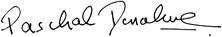 Paschal Donohoe